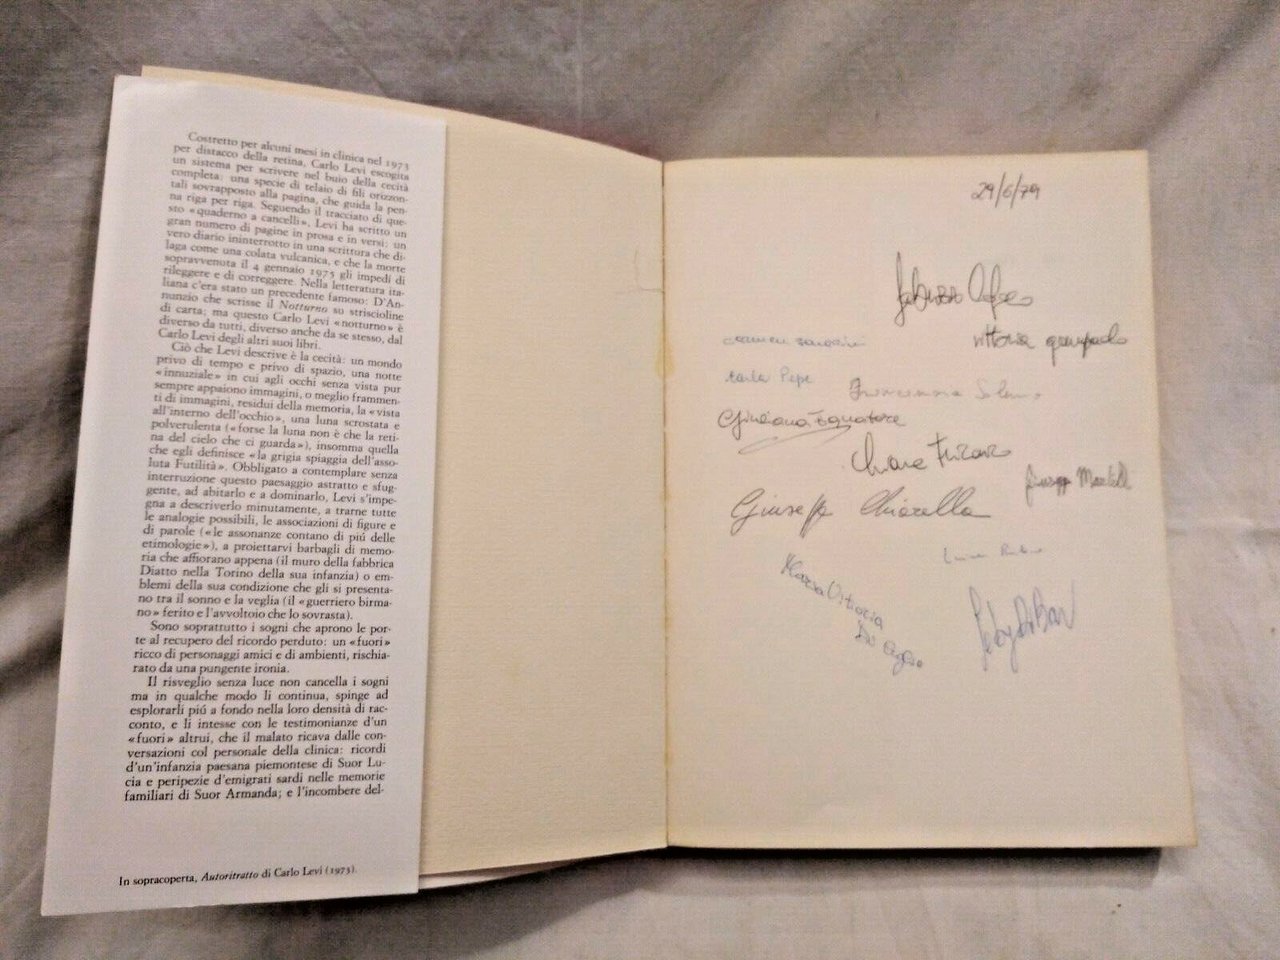 Costretto per alcuni mesi in clinica nel 1973
per distacco della retina, Carlo Levi escogita
un sistema per scrivere nel buio della cecità
completa: una specie di telaio di fili orizzon-
tali sovrapposto alla pagina, che guida la pen-
na riga per riga. Seguendo il tracciato di que-
sto «quaderno a cancelli», Levi ha scritto un
gran numero di pagine in prosa e in versi: un
vero diario ininterrotto in una scrittura che di-
laga come una colata vulcanica, e che la morte
sopravvenuta il 4 gennaio 1975 gli impedí di
rileggere e di correggere. Nella letteratura ita-
liana c'era stato un precedente famoso: D'An-
nunzio che scrisse il Notturno su striscioline
di carta; ma questo Carlo Levi «notturno» è
diverso da tutti, diverso anche da se stesso, dal
Carlo Levi degli altri suoi libri.
Ciò che Levi descrive è la cecità: un mondo
privo di tempo e privo di spazio, una notte
«innuziale» in cui agli occhi senza vista pur
sempre appaiono immagini, o meglio frammen-
ti di immagini, residui della memoria, la «vista
all'interno dell'occhio», una luna scrostata e
polverulenta («forse la luna non è che la reti-
na del cielo che ci guarda»), insomma quella
che egli definisce «la grigia spiaggia dell'asso-
luta Futilità». Obbligato a contemplare senza
interruzione questo paesaggio astratto e sfug-
gente, ad abitarlo e a dominarlo, Levi s'impe-
gna a descriverlo minutamente, a trarne tutte
le analogie possibili, le associazioni di figure e
di parole («le assonanze contano di piú delle
etimologie»), a proiettarvi barbagli di memo-
ria che affiorano appena (il muro della fabbrica
Diatto nella Torino della sua infanzia) o em-
blemi della sua condizione che gli si presenta-
no tra il sonno e la veglia (il «guerriero birma-
no» ferito e l'avvoltoio che lo sovrasta).
Sono soprattutto i sogni che aprono le por-
te al recupero del ricordo perduto: un «fuori»
ricco di personaggi amici e di ambienti, rischia-
rato da una pungente ironia.
Il risveglio senza luce non cancella i sogni
ma in qualche modo li continua, spinge ad
esplorarli piú a fondo nella loro densità di rac-
conto, e li intesse con le testimonianze d'un
«fuori» altrui, che il malato ricava dalle con-
versazioni col personale della clinica: ricordi
d'un'infanzia paesana piemontese di Suor Lu-
cia e peripezie d'emigrati sardi nelle memorie
familiari di Suor Armanda; e l'incombere del-
In sopracoperta, Autoritratto di Carlo Levi (1973).
29/6/79
Vittoria
Carla Pepe
Giuliana
Chiara
Giuseppe
Giuseppe Chiarella
Maria Vittoria